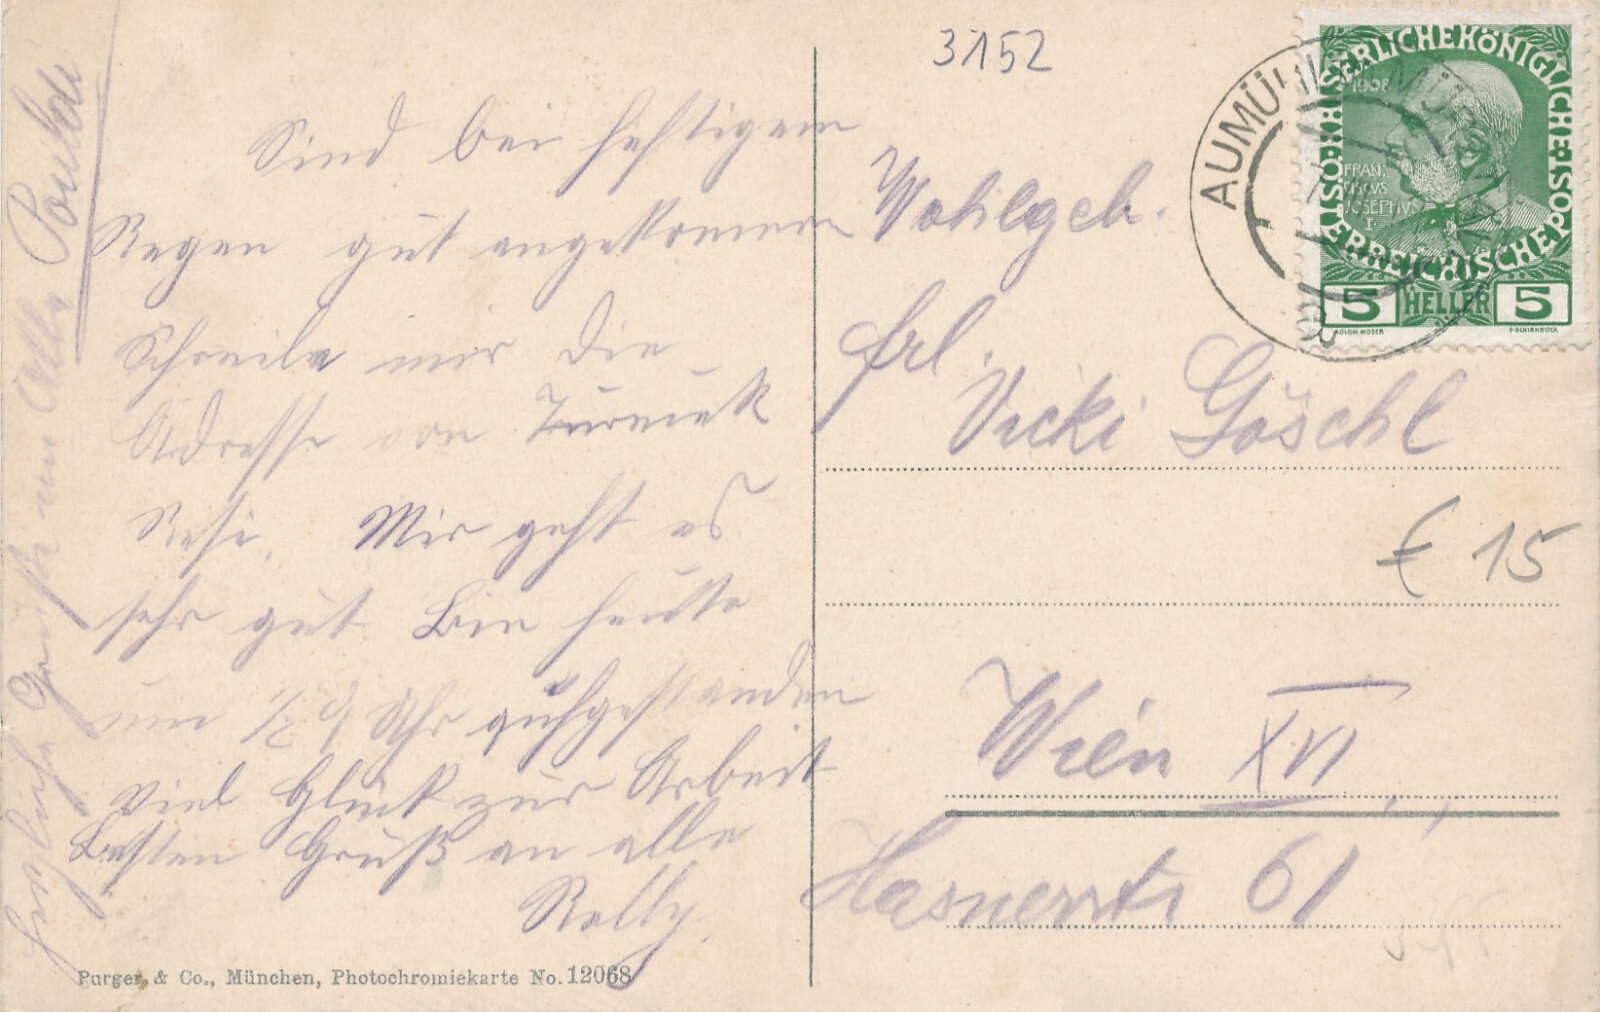 3152
Sind bei heftigem
Regen gut angekommen
Schreibe mir die
Adresse von
Resi. Mir geht es
sehr gut Bin heute
um 1/2 9 Uhr aufgestanden
Viel Glück zur Arbeit
Besten Gruß an alle
Nelly.
Herzliche Grüße an alle
Wohlgeb.
Frl.
Vicki Göschl
€ 15
Wien XVI,
Hasnerstr 61
AUMÜHL
KAISERLICHE KÖNIGLICHE
ÖSTERREICHISCHE POST
1908
FRAN
CISCVS
JOSEPHVS
I
5 HELLER 5
KOLOM. MOSER
F. SCHIRNBÖCK
Purger & Co., München, Photochromiekarte No. 12068